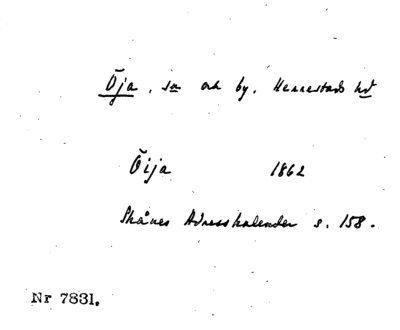 Öja, sn och by, Herrestads hd
Öija 1862
Skånes Adresskalender s. 158.
Nr 7831.